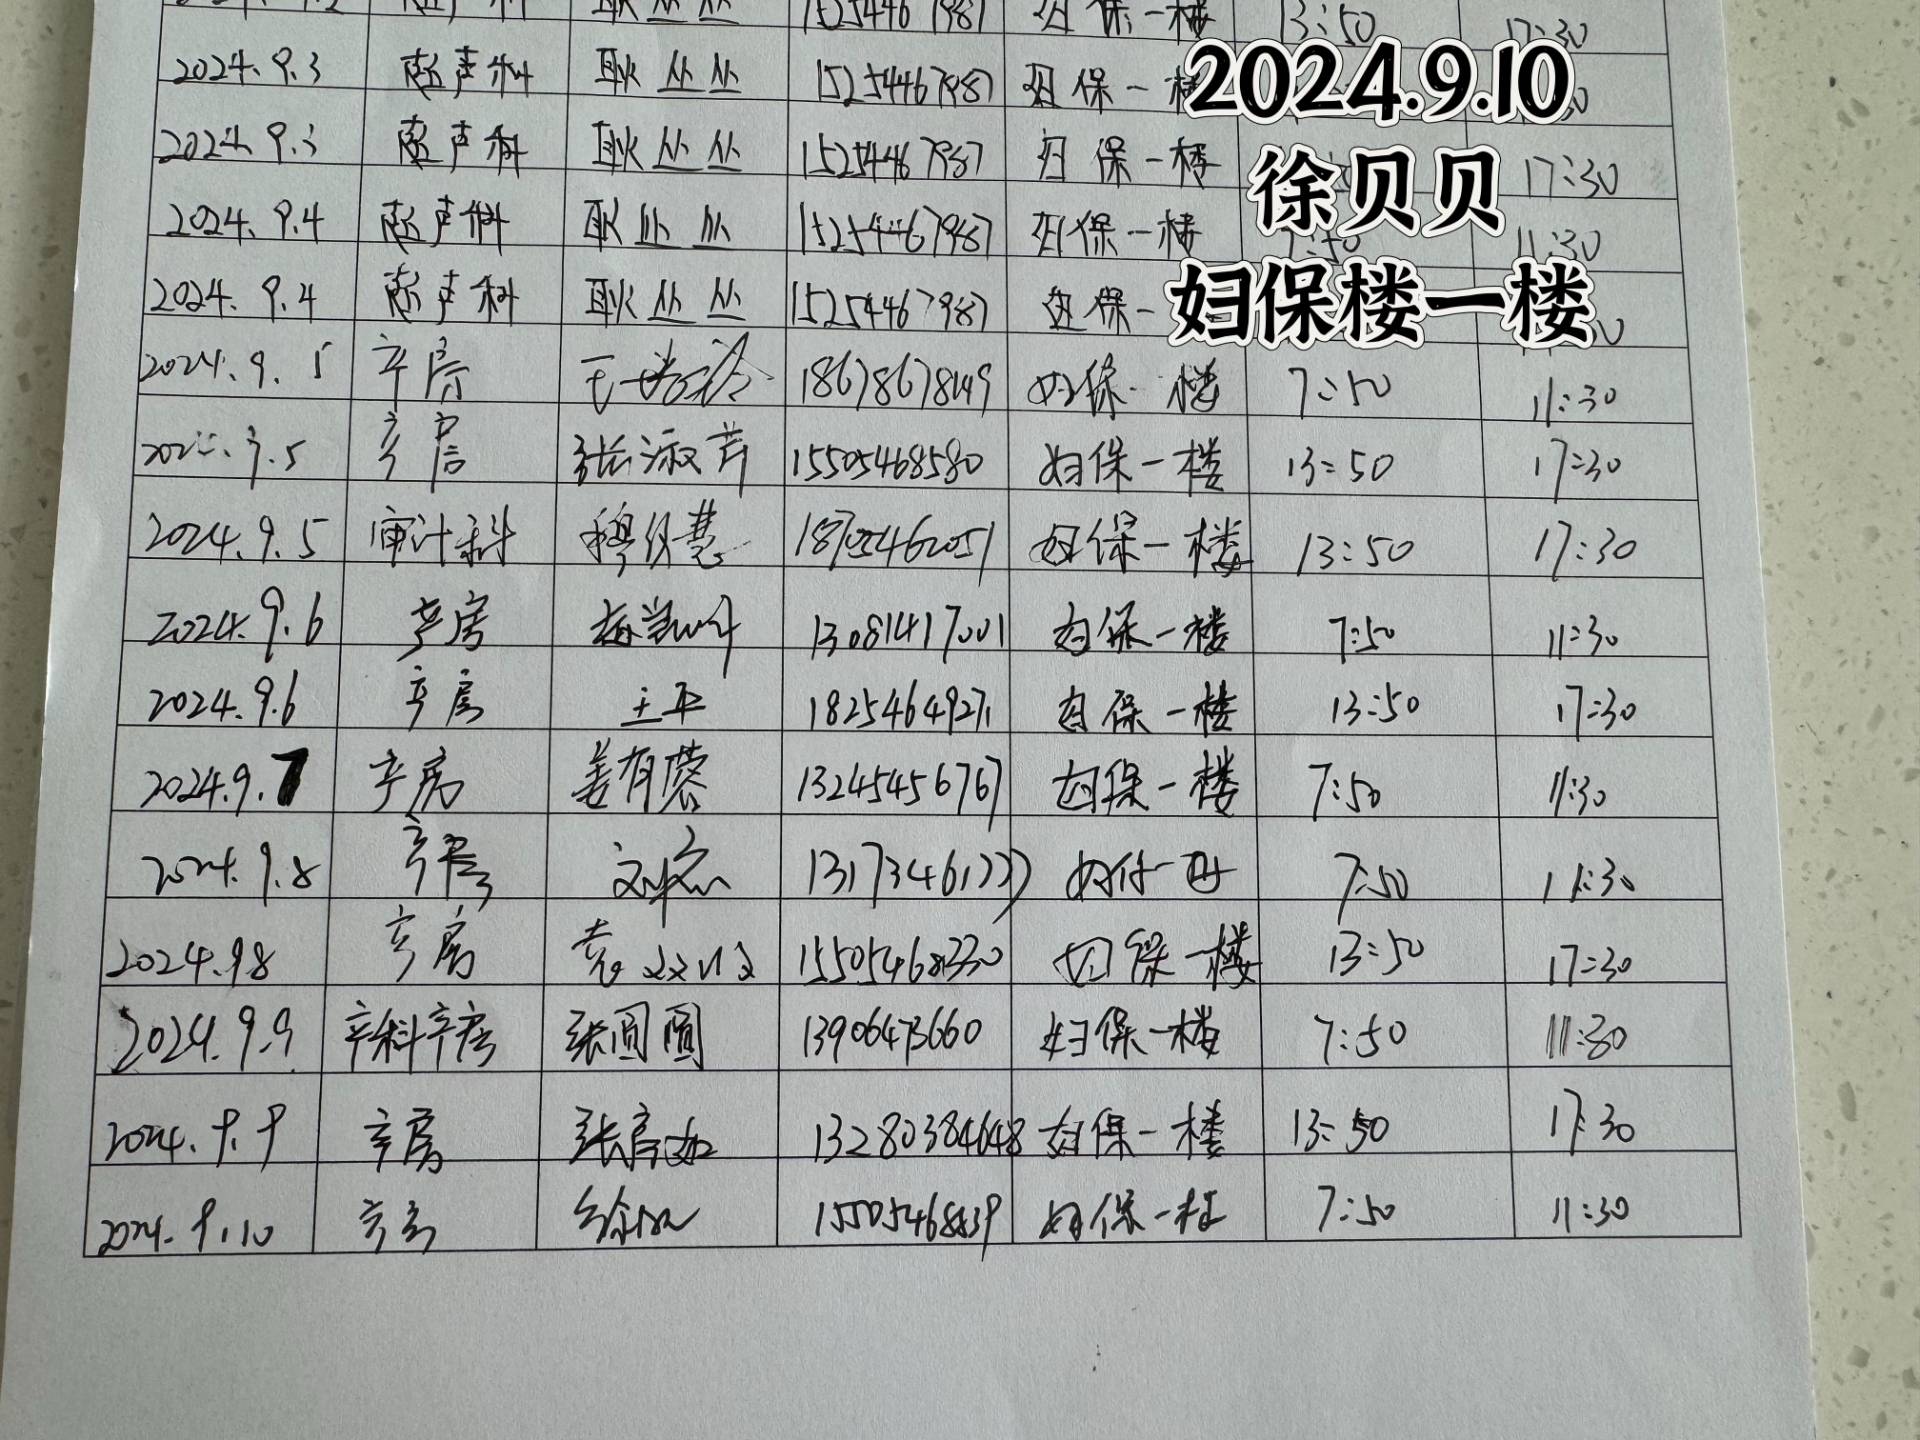 超声科 耿丛丛 15254467987 妇保一楼 13:50 17:30
2024.9.3 超声科 耿丛丛 15254467987 妇保一楼
2024.9.3 超声科 耿丛丛 15254467987 妇保一楼 17:30
2024.9.4 超声科 耿丛丛 15254467987 妇保一楼 7:50 11:30
2024.9.4 超声科 耿丛丛 15254467987 妇保一
2024.9.10
徐贝贝
妇保楼一楼
2024.9.5 产房 18678678149 妇保一楼 7:50 11:30
2024.9.5 产房 张淑芹 15505468580 妇保一楼 13:50 17:30
2024.9.5 审计科 18705462051 妇保一楼 13:50 17:30
2024.9.6 产房 13081417001 妇保一楼 7:50 11:30
2024.9.6 产房 王平 1825464927 妇保一楼 13:50 17:30
2024.9.7 产房 姜有蓉 13245456767 妇保一楼 7:50 11:30
2024.9.8 产房 妇保一 7:50 11:30
2024.9.8 产房 妇保一楼 13:50 17:30
2024.9.9 产科产房 张圆圆 13906473660 妇保一楼 7:50 11:30
2024.9.9 产房 13280384648 妇保一楼 13:50 17:30
2024.9.10 产房 徐贝贝 15505468539 妇保一楼 7:50 11:30